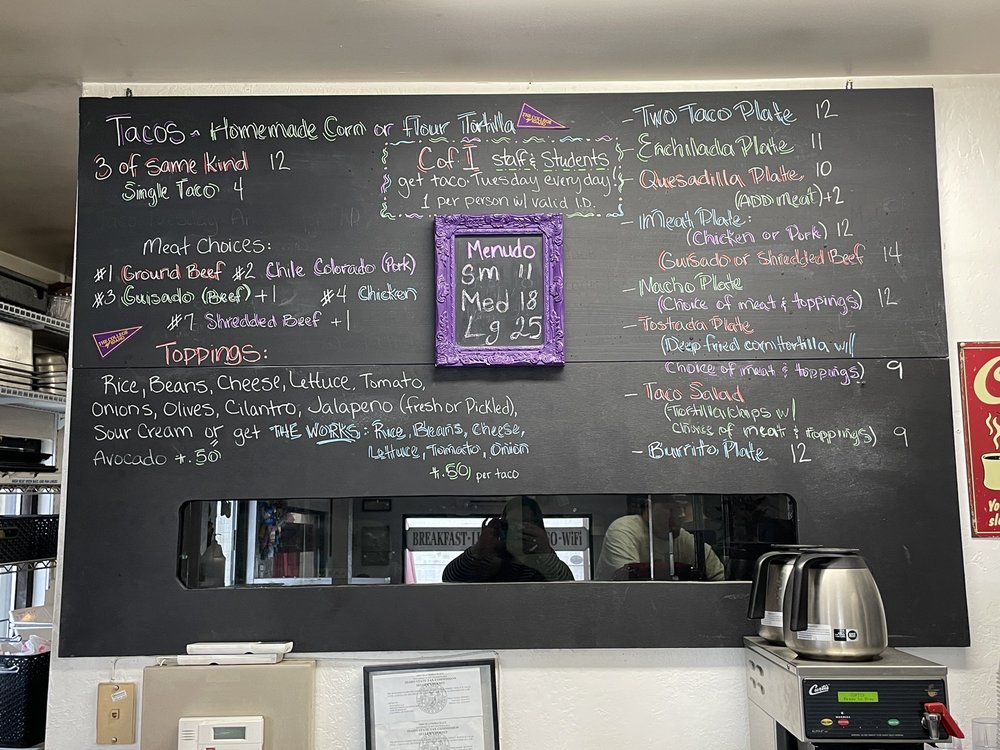 Tacos ~ Homemade Corn or Flour Tortilla
3 of same kind 12
Single Taco 4
THE COLLEGE
CofI staff & students
get taco Tuesday everyday!
1 per person w/ valid I.D.
Meat Choices:
#1 Ground Beef #2 Chile Colorado (Pork)
#3 Guisado (Beef) +1 #4 Chicken
#7 Shredded Beef +1
THE COLLEGE
Toppings:
Rice, Beans, Cheese, Lettuce, Tomato,
Onions, Olives, Cilantro, Jalapeno (fresh or Pickled),
Sour Cream or get THE WORKS: Rice, Beans, Cheese,
Lettuce, Tomato, Onion
Avocado +.50
+.50 per taco
Menudo
Sm 11
Med 18
Lg 25
- Two Taco Plate 12
- Enchilada Plate 11
- Quesadilla Plate 10
(ADD meat) +2
- Meat Plate:
(Chicken or Pork) 12
Guisado or Shredded Beef 14
- Nacho Plate
(Choice of meat & toppings) 12
- Tostada Plate
(Deep fried corn tortilla w/
choice of meat & toppings) 9
- Taco Salad
(Tortilla chips w/
choice of meat & toppings) 9
- Burrito Plate 12
BREAKFAST-LU
O-WiFi
Curtis